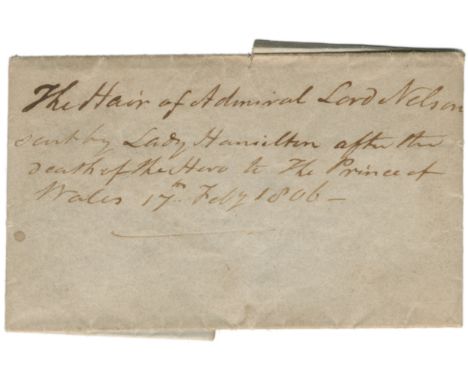 The Hair of Admiral Lord Nelson
sent by Lady Hamilton after the
death of the Hero to The Prince of
Wales 17th Feby 1806 –